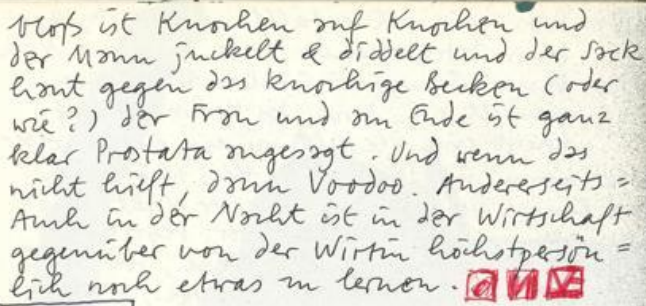 bloß ist Knochen auf Knochen und
der Mann juckelt & diddelt und der Sack
haut gegen das knochige Becken (oder
wie?) der Frau und am Ende ist ganz
klar Prostata angesagt. Und wenn das
nicht hielft, dann Voodoo. Andererseits =
Auch in der Nacht ist in der Wirtschaft
gegenüber von der Wirtin höchstpersön =
lich noch etwas zu lernen.